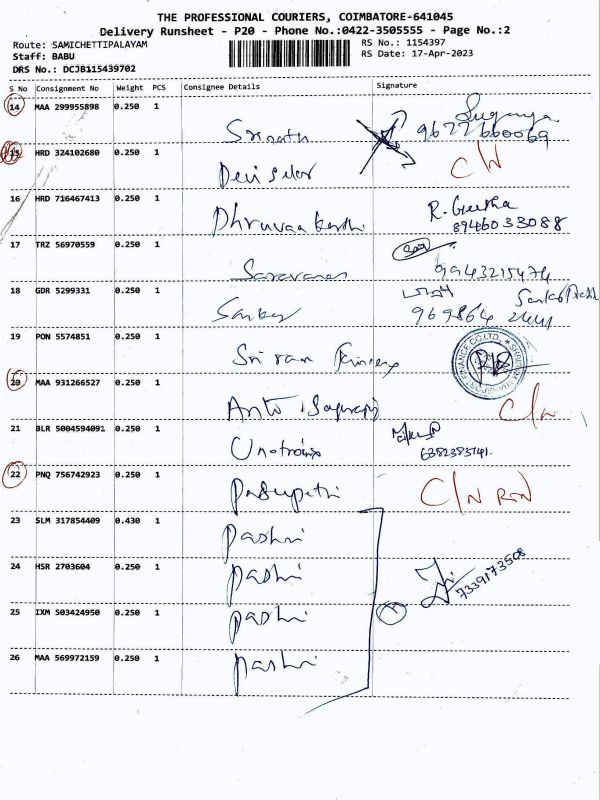 THE PROFESSIONAL COURIERS, COIMBATORE-641045
Delivery Runsheet - P20 - Phone No.:0422-3505555 - Page No.:2
Route: SAMICHETTIPALAYAM RS No.: 1154397
Staff: BABU RS Date: 17-Apr-2023
DRS No.: DCJB115439702
S No Consignment No Weight PCS Consignee Details Signature
14 MAA 299955898 0.250 1 Srinath Suganya
9677660069
15 HRD 324102680 0.250 1 C/N
16 HRD 716467413 0.250 1 R. Geetha
8946033088
17 TRZ 56970559 0.250 1 Saravanan 9943215474
18 GDR 5299331 0.250 1 969864 2441
19 PON 5574851 0.250 1 Sriram
20 MAA 931266527 0.250 1 Anto C/N
21 BLR 5004594091 0.250 1 6382383741.
22 PNQ 756742923 0.250 1 Pasupathi C/N RTN
23 SLM 317854409 0.430 1 Pashni
24 HSR 2703604 0.250 1 Pashni 7339173508
25 IXM 503424950 0.250 1 Pashni
26 MAA 569972159 0.250 1 Pashni